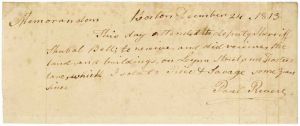 Memorandum Boston December 24, 1813
This day attended the deputy Sheriff
Shubal Bell, to receive, and did receive the
land, and buildings, on Lynn Street and Foster
lane, which I sold to Rice & Savage some years
since
Paul Revere